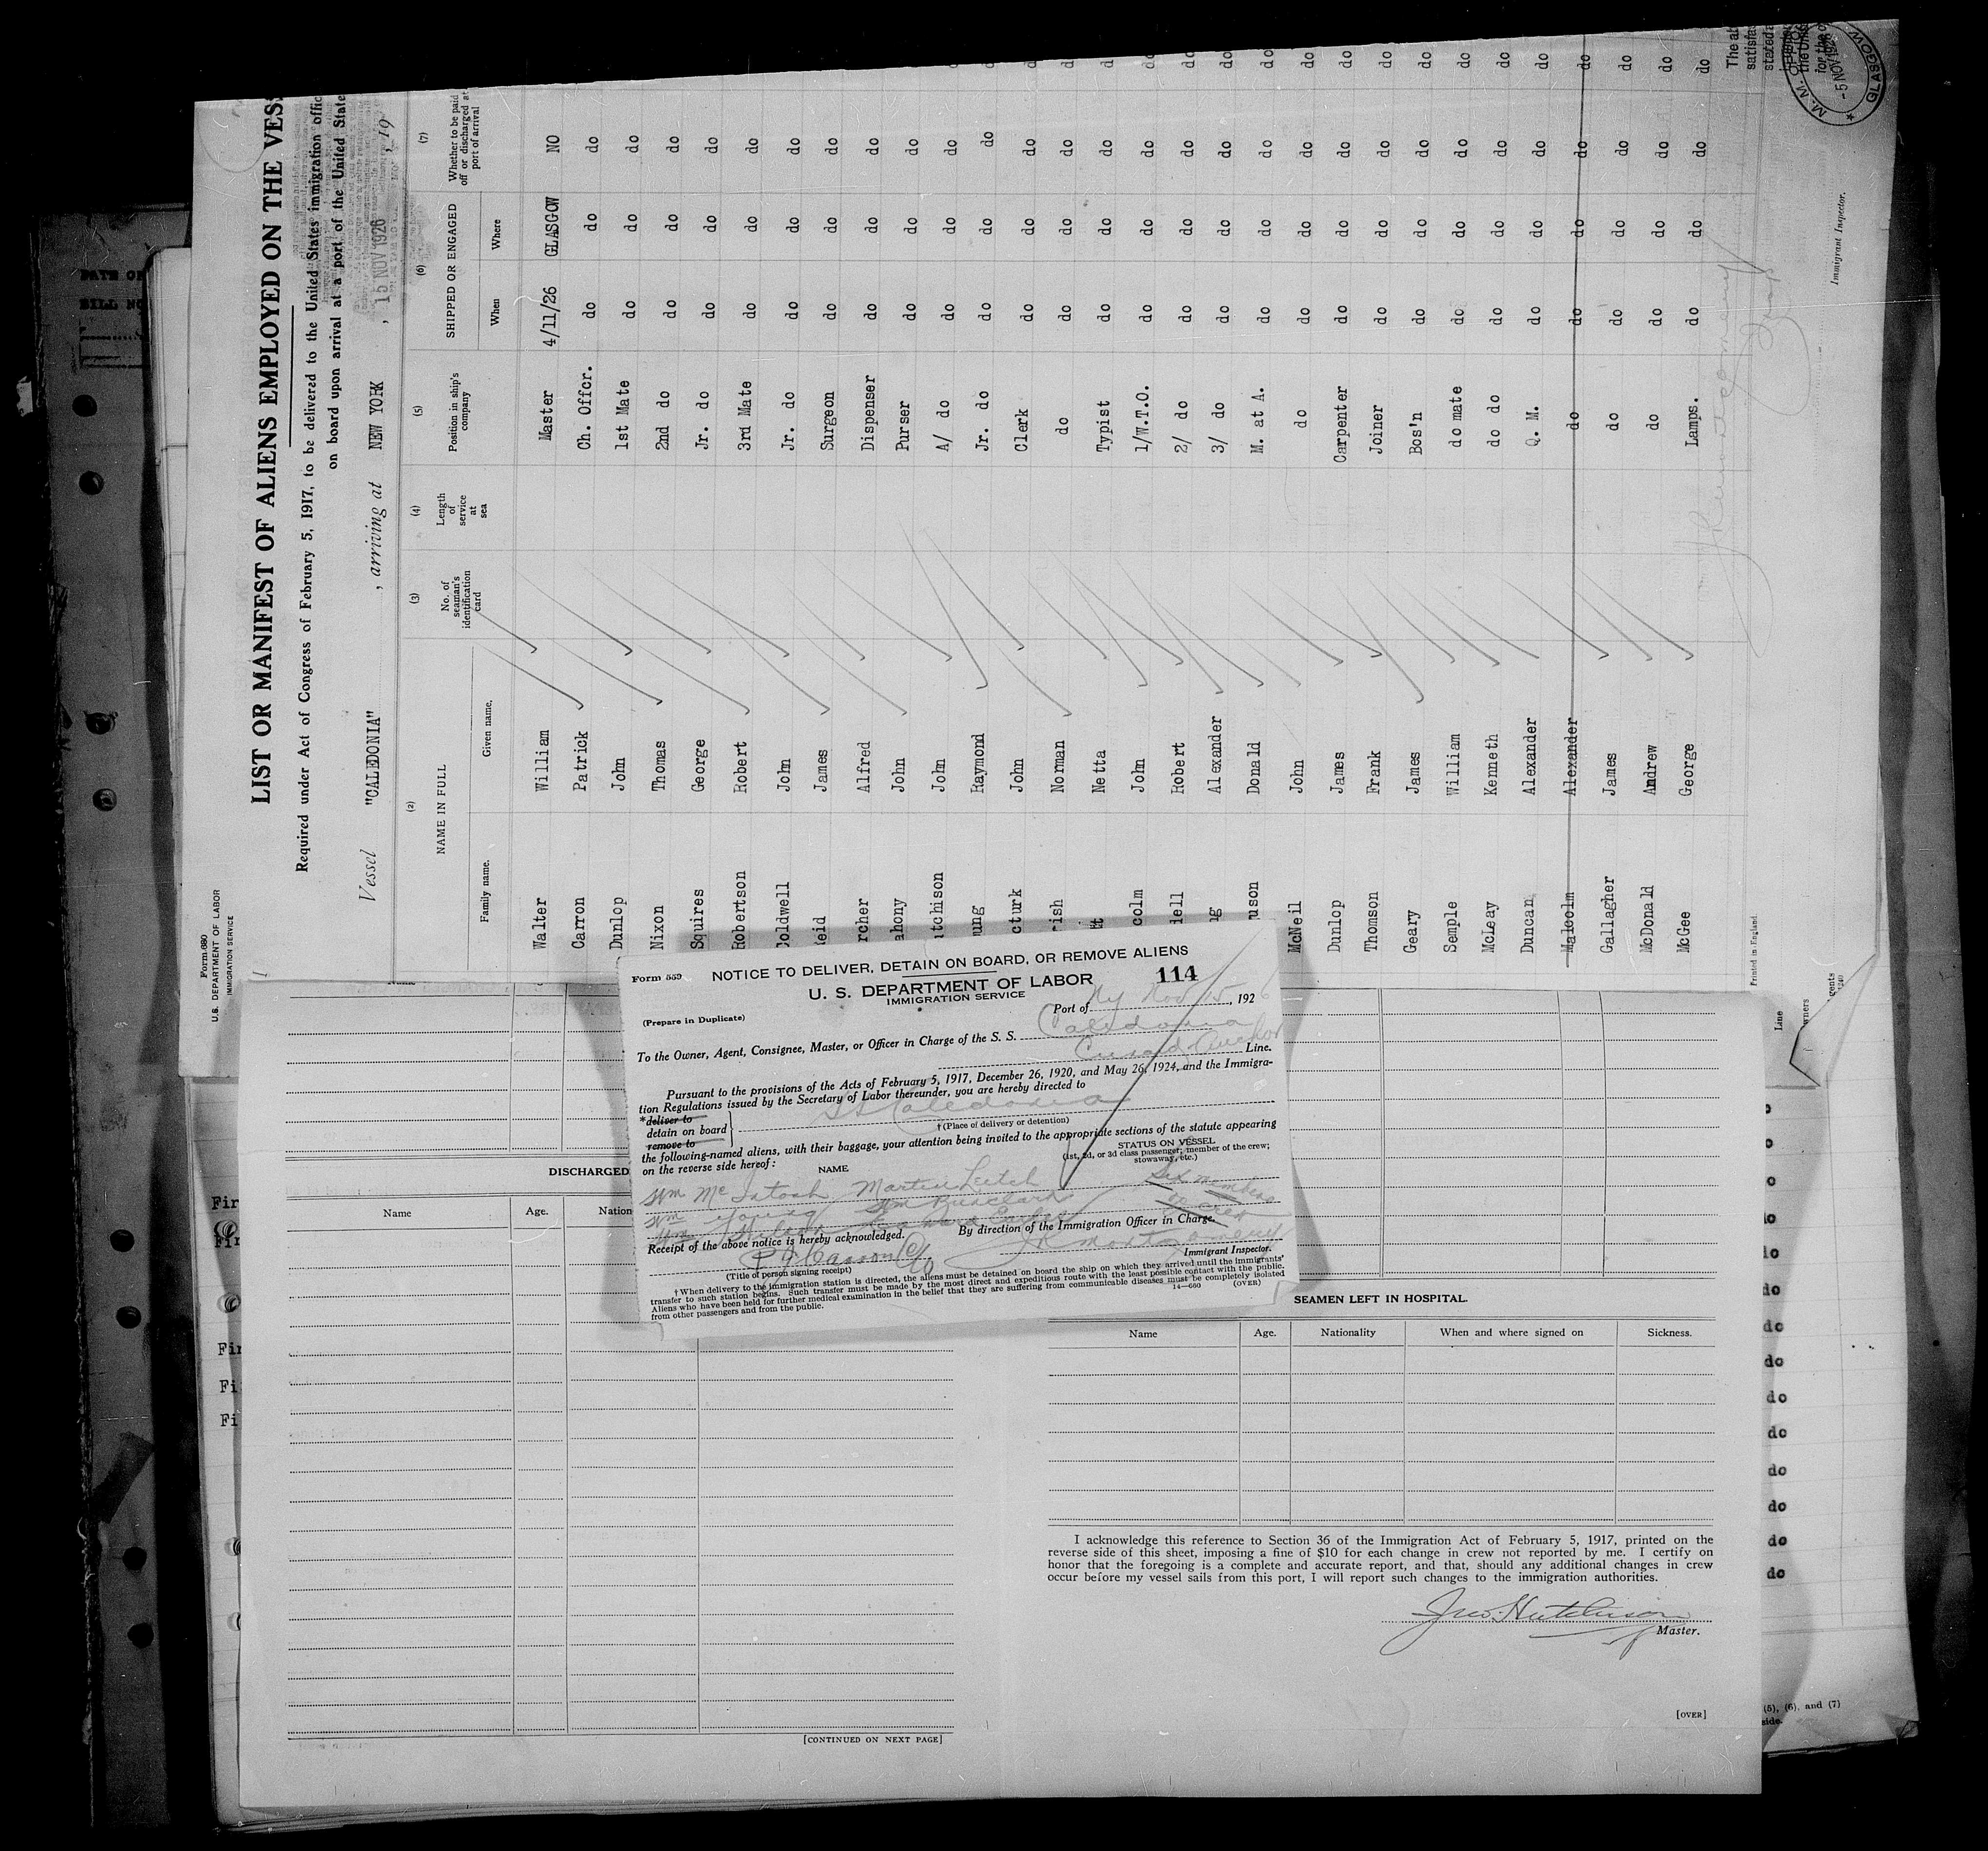 Form 680
U.S. DEPARTMENT OF LABOR
IMMIGRATION SERVICE
LIST OR MANIFEST OF ALIENS EMPLOYED ON THE VES
Required under Act of Congress of February 5, 1917, to be delivered to the United States immigration offic
on board upon arrival at a port of the United State
Vessel "CALEDONIA", arriving at NEW YORK, 15 NOV 1926, 19
(2) (3) (4) (5) (6) (7)
NAME IN FULL No. of seaman's identification card Length of service at sea Position in ship's company SHIPPED OR ENGAGED Whether to be paid off or discharged at port of arrival
Family name. Given name. When Where
Walter William Master 4/11/26 GLASGOW NO
Carron Patrick Ch. Offcr. do do do do
Dunlop John 1st Mate do do do do
Nixon Thomas 2nd do do do do do
Squires George Jr. do do do do do
Robertson Robert 3rd Mate do do do do
Coldwell John Jr. do do do do do
eid James Surgeon do do do do
rcher Alfred Dispenser do do do do
ahony John Purser do do do do
utchison John A/ do do do do do
oung Raymond Jr. do do do do do
cturk John Clerk do do do do
rish Norman do do do do do
tt Netta Typist do do do do
colm John 1/W.T.O. do do do do
dell Robert 2/ do do do do do
ng Alexander 3/ do do do do do
uson Donald M. at A. do do do do
McNeil John do do do do do
Dunlop James Carpenter do do do do
Thomson Frank Joiner do do do do
Geary James Bos'n do do do do
Semple William do mate do do do do
McLeay Kenneth do do do do do do
Duncan Alexander Q. M. do do do do
Malcolm Alexander do do do do do
Gallagher James do do do do do
McDonald Andrew do do do do do
McGee George Lamps. do do do do
Printed in England.
Immigrant Inspector.
The ab
satisfa
stated
the Uni
for the
M. M. O
-5 NOV 192
GLASGOW
DATE OF
BILL NO
Form 559 NOTICE TO DELIVER, DETAIN ON BOARD, OR REMOVE ALIENS
U. S. DEPARTMENT OF LABOR 114
IMMIGRATION SERVICE
(Prepare in Duplicate) Port of Ny Nov 15, 1926
To the Owner, Agent, Consignee, Master, or Officer in Charge of the S. S. Caledonia
Cunard Anchor Line.
Pursuant to the provisions of the Acts of February 5, 1917, December 26, 1920, and May 26, 1924, and the Immigra-
tion Regulations issued by the Secretary of Labor thereunder, you are hereby directed to
*deliver to
detain on board SS Caledonia
remove to †(Place of delivery or detention)
the following-named aliens, with their baggage, your attention being invited to the appropriate sections of the statute appearing
on the reverse side hereof:
NAME STATUS ON VESSEL
(1st, 2d, or 3d class passenger; member of the crew;
stowaway, etc.)
Wm McIntosh Martin Leitch Six members
Wm Young Wm
Wm of crew
Receipt of the above notice is hereby acknowledged. By direction of the Immigration Officer in Charge.
Montgomery
(Title of person signing receipt) Immigrant Inspector.
†When delivery to the immigration station is directed, the aliens must be detained on board the ship on which they arrived until the immigrants'
transfer to such station begins. Such transfer must be made by the most direct and expeditious route with the least possible contact with the public.
Aliens who have been held for further medical examination in the belief that they are suffering from communicable diseases must be completely isolated
from other passengers and from the public. 14—600 (OVER)
DISCHARGED
Name Age. Nation
[CONTINUED ON NEXT PAGE]
SEAMEN LEFT IN HOSPITAL.
Name Age. Nationality When and where signed on Sickness.
I acknowledge this reference to Section 36 of the Immigration Act of February 5, 1917, printed on the
reverse side of this sheet, imposing a fine of $10 for each change in crew not reported by me. I certify on
honor that the foregoing is a complete and accurate report, and that, should any additional changes in crew
occur before my vessel sails from this port, I will report such changes to the immigration authorities.
Jno. Hutchison
Master.
[OVER]
Fir
Fir
Fir
Fi
Fi
Line
wners
gents
do
do
do
do
do
do
do
do
do
(5), (6), and (7)
side.